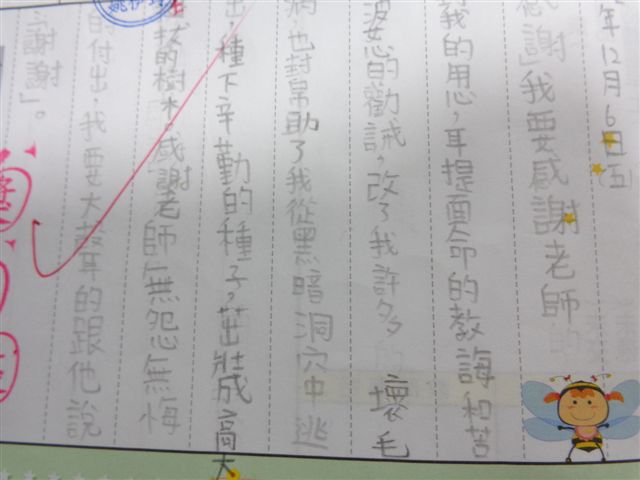 年12月6日(五)
感謝」我要感謝老師的
我的用心,耳提面命的教誨和苦
婆心的勸誡,改了我許多的壞毛
病,也幫助了我從黑暗洞穴中逃
出,種下辛勤的種子,茁壯成高大
挺拔的樹木,感謝老師無怨無悔
的付出,我要大聲的跟他說
謝謝」。